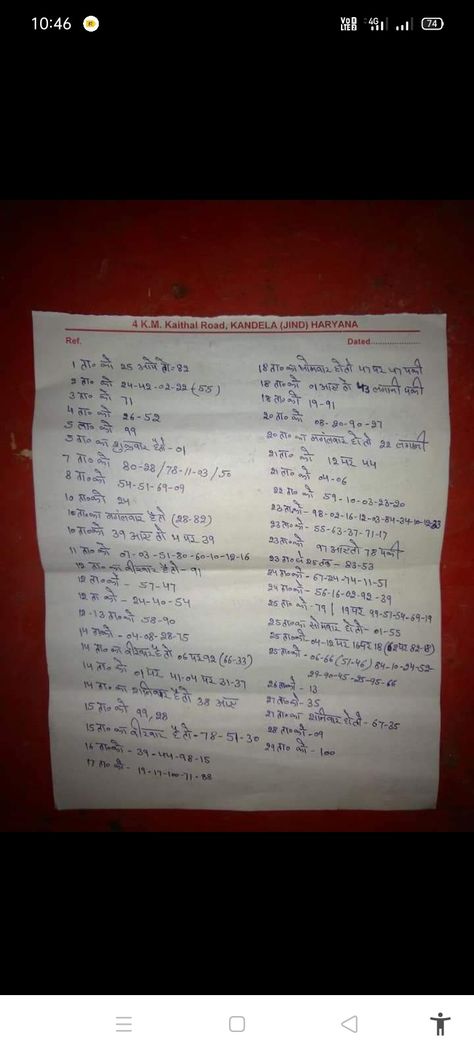 10:46
VoD LTE
4G
74
4 K.M. Kaithal Road, KANDELA (JIND) HARYANA
Ref.
Dated
1 ता० को 25 आये तो-82
2 ता० को 24-42-02-22 (55)
3 ता० को 71
4 ता० को 26-52
5 ता० को 99
5 ता० का शुक्रवार है तो-01
7 ता० को 80-28/78-11-03/50
8 ता० को 54-51-69-09
10 ता० को 24
10 ता० को मगंलवार है तो (28-82)
10 ता० को 39 आए तो 4 पर 39
11 ता० को 01-03-51-80-60-10-12-16
12 ता० का वीरवार है तो-91
12 ता० को - 57-47
12 ता को - 24-40-54
12-13 ता० को 58-90
14 ता०को - 04-08-28-75
14 ता० का वीरवार है तो 06 पर 92 (66-33)
14 ता० को 01 पर 41-04 पर 31-37
14 ता० का शनिवार है तो 38 आए
15 ता० को 99, 28
15 ता० का वीरवार है तो-78-51-30
16 ता० को - 39-44-98-15
17 ता० को - 19-17-100-71-88
18 ता० का सोमवार हो तो 47 पर 47 पकी
18 ता० को 01 आए तो 43 लगानी पकी
18 ता० को 19-91
20 ता० को 08-20-90-27
20 ता० का मगंलवार हो तो 22 लगानी
21 ता० को 12 पर 44
21 ता० को 04-06
22 ता० को 59-10-03-23-20
23 ता०को-98-02-16-12-03-84-34-10-12-33
23 ता०को- 55-63-37-71-17
23 ता०को 97 आए तो 78 पकी
23 ता० से 25 तक - 23-53
24 ता०को - 67-24-74-11-51
24 ता०को- 56-16-02-92-39
25 ता० को-79/19 पर 99-51-54-69-19
25 ता० का सोमवार हो तो-01-55
25 ता०को-04-12 पर 16 पर 18 (62 पर 82-18)
25 ता०को- 06-66 (57-46) 84-10-24-52
29-90-45-25-95-66
26 ता०को - 13
27 ता०को-35
27 ता० का शनिवार हो तो-67-35
28 ता० को-09
29 ता० को-100